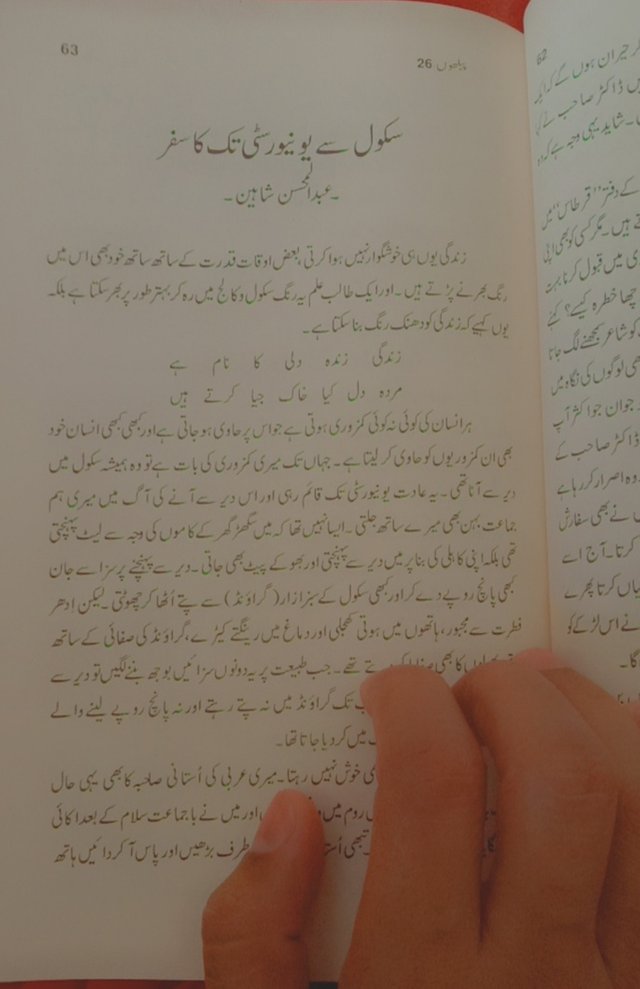 63
پیلھوں 26
سکول سے یونیورسٹی تک کا سفر
۔عبدالمحسن شاہین۔
زندگی یوں ہی خوشگوار نہیں ہوا کرتی بعض اوقات قدرت کے ساتھ ساتھ خود بھی اس میں
رنگ بھرنے پڑتے ہیں۔ اور ایک طالب علم یہ رنگ سکول و کالج میں رہ کر بہتر طور پر بھر سکتا ہے بلکہ
یوں کہیے کہ زندگی کو دھنک رنگ بنا سکتا ہے۔
زندگی زندہ دلی کا نام ہے
مردہ دل کیا خاک جیا کرتے ہیں
ہر انسان کی کوئی نہ کوئی کمزوری ہوتی ہے جو اس پر حاوی ہو جاتی ہے اور کبھی کبھی انسان خود
بھی ان کمزوریوں کو حاوی کر لیتا ہے۔ جہاں تک میری کمزوری کی بات ہے تو وہ ہمیشہ سکول میں
دیر سے آنا تھی۔ یہ عادت یونیورسٹی تک قائم رہی اور اس دیر سے آنے کی آگ میں میری ہم
جماعت بہن بھی میرے ساتھ جلتی۔ ایسا نہیں تھا کہ میں سگھڑ گھر کے کاموں کی وجہ سے لیٹ پہنچتی
تھی بلکہ اپنی کاہلی کی بنا پر میں دیر سے پہنچتی اور بھوکے پیٹ بھی جاتی۔ دیر سے پہنچنے پر سزا سے جان
کبھی پانچ روپے دے کر اور کبھی سکول کے سبزازار (گراؤنڈ) سے پتے اُٹھا کر چھوٹتی۔ لیکن ادھر
فطرت سے مجبور، ہاتھوں میں ہوتی کھجلی اور دماغ میں رینگتے کیڑے، گراؤنڈ کی صفائی کے ساتھ
تھے۔ جب طبیعت پر یہ دونوں سزائیں بوجھ بننے لگیں تو دیر سے
تک گراؤنڈ میں نہ پتے رہتے اور نہ پانچ روپے لینے والے
میں کر دیا جاتا تھا۔
خوش نہیں رہتا۔ میری عربی کی اُستانی صاحبہ کا بھی یہی حال
روم میں اور میں نے با جماعت سلام کے بعد اکائی
طرف بڑھیں اور پاس آ کر دائیں ہاتھ
62
حیران ہوں گے کہ
ڈاکٹر صاحب نے
۔ شاید یہی وجہ ہے کہ
کے دفتر "قرطاس" میں
ہیں۔ مگر کسی کو بھی اپنی
میں قبول کرنا بہت
خطرہ کیسے؟ کئے
کو شاعر سمجھنے لگ جاتا
لوگوں کی نگاہ میں
جوان جو اکثر آپ
ڈاکٹر صاحب کے
وہ اصرار کر رہا ہے
نے بھی سفارش
کرتا۔ آج اسے
کرتا پھرے
نے اس لڑکے کو
گا۔